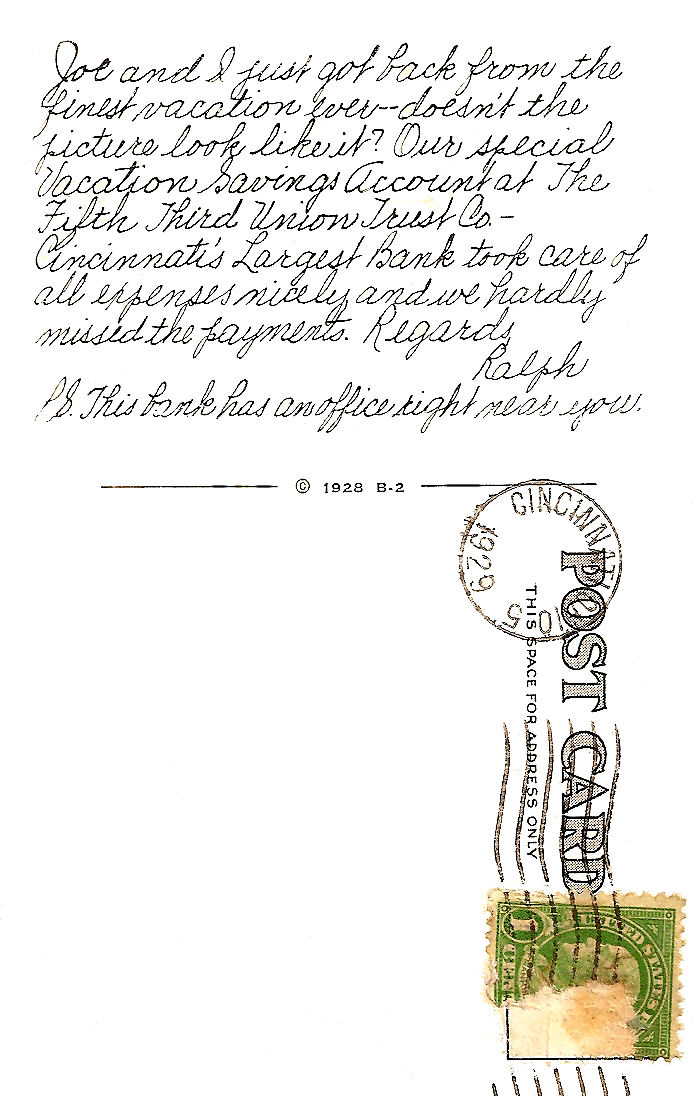 Joe and I just got back from the
finest vacation ever--doesn't the
picture look like it? Our special
Vacation Savings Account at The
Fifth Third Union Trust Co.-
Cincinnati's Largest Bank took care of
all expenses nicely and we hardly
missed the payments. Regards,
Ralph
P.S. This bank has an office right near you.
© 1928 B-2
CINCINNATI
1929
5
POST CARD
THIS SPACE FOR ADDRESS ONLY
1